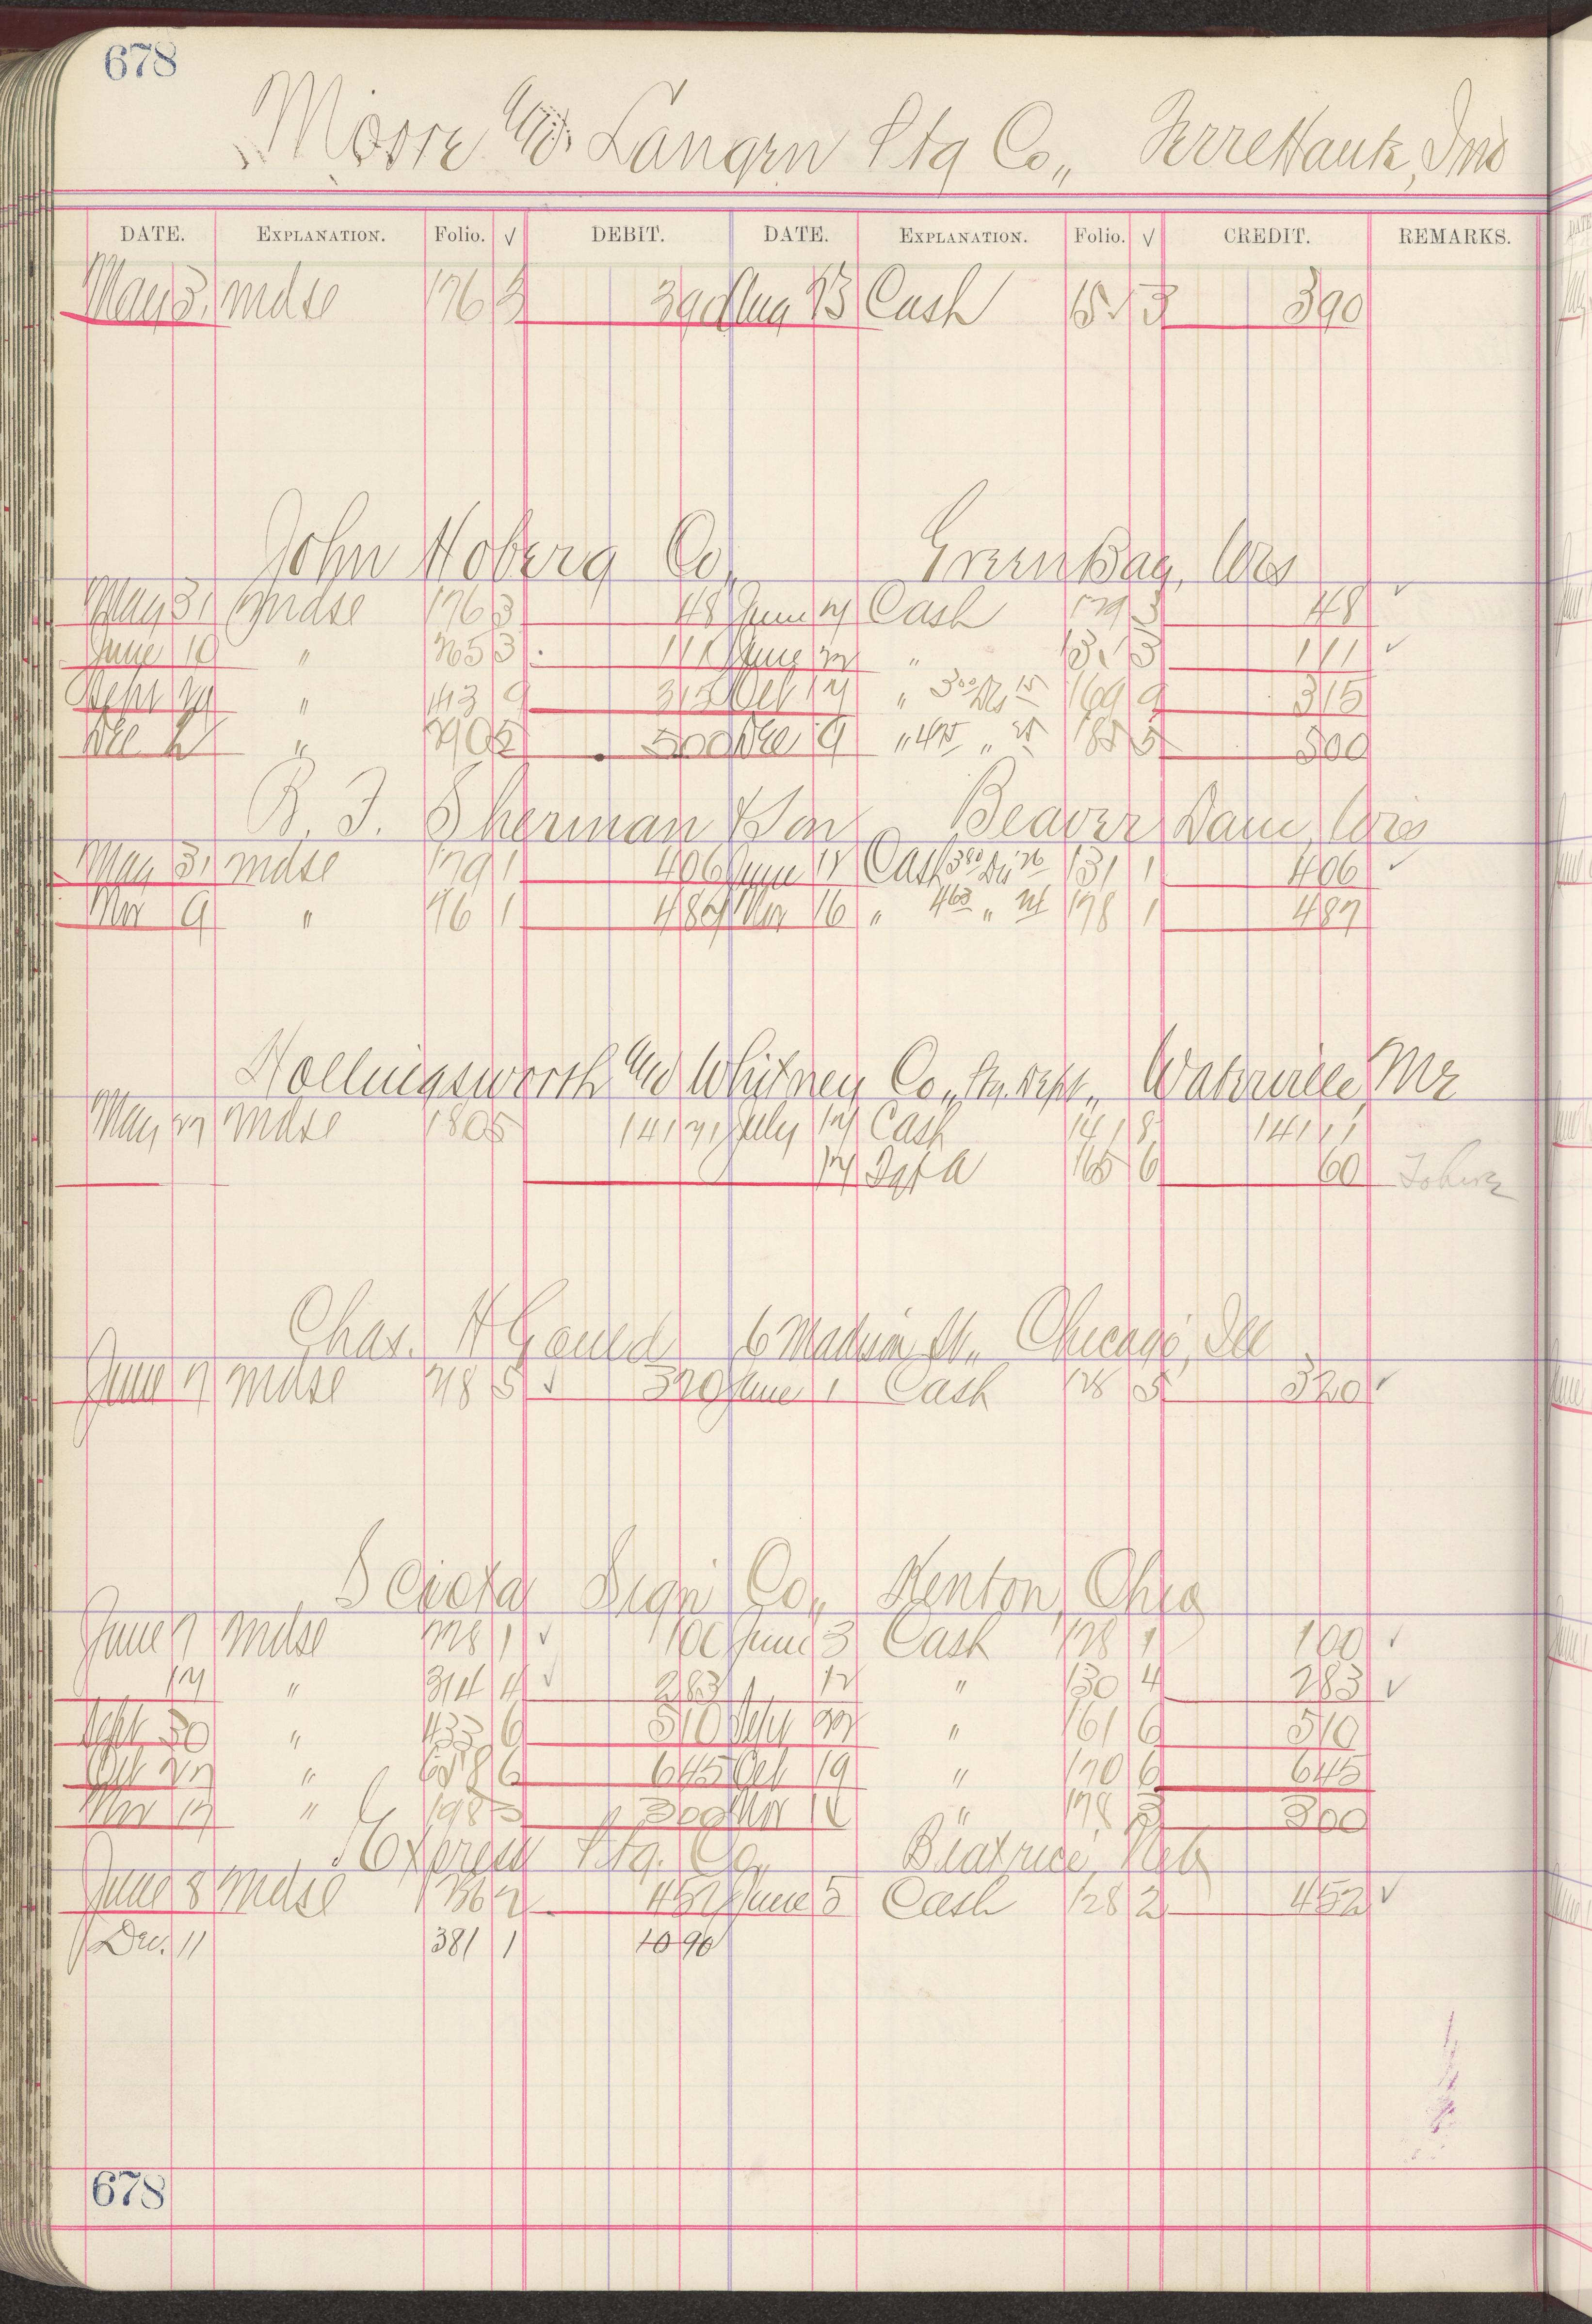 678
Moore and Langen Ptg Co,, Terre Haute, Ind
DATE. EXPLANATION. Folio. √ DEBIT. DATE. EXPLANATION. Folio. √ CREDIT. REMARKS.
May 31 mdse 176 3 390 Aug 13 Cash 15 3 390
John Hoberg Co,, Green Bay, Wis
May 31 mdse 176 3 48 June Cash 129 3 48 ✓
June 10 " 265 3 111 June " 13 3 111 ✓
Sept " 413 9 315 Oct " 3⁰⁰ Dis 15 169 9 315
Dec 2 " 290 5 500 Dec 9 " 475 " 25 185 5 500
B. F. Sherman & Son Beaver Dam, Wis
May 31 mdse 179 1 406 June 18 Cash 380 Dis 26 131 1 406 ✓
Nov 9 " 76 1 487 Nov 16 " 463 " 24 178 1 487
Hollingsworth and Whitney Co,, Ptg. Dept,, Waterville, Me
May 27 mdse 180 5 141 71 July 12 Cash 141 8 141 11
12 60
Chas. H Gould 6 Madison St,, Chicago, Ill
June 7 mdse 218 5 ✓ 320 June 1 Cash 128 5 320 ✓
Sciota Sign Co,, Kenton, Ohio
June 7 mdse 228 1 ✓ 100 June 3 Cash 128 1 100 ✓
14 " 314 4 ✓ 283 12 " 130 4 283 ✓
Sept 30 " 433 6 510 Sept 22 " 161 6 510
Oct 27 " 658 6 645 Oct 19 " 170 6 645
Nov 17 " 198 3 300 Nov 18 " 178 3 300
Express Ptg. Co,, Beatrice, Neb
June 8 mdse 236 2 452 June 5 Cash 128 2 452 ✓
Dec. 11 381 1 10 90
678